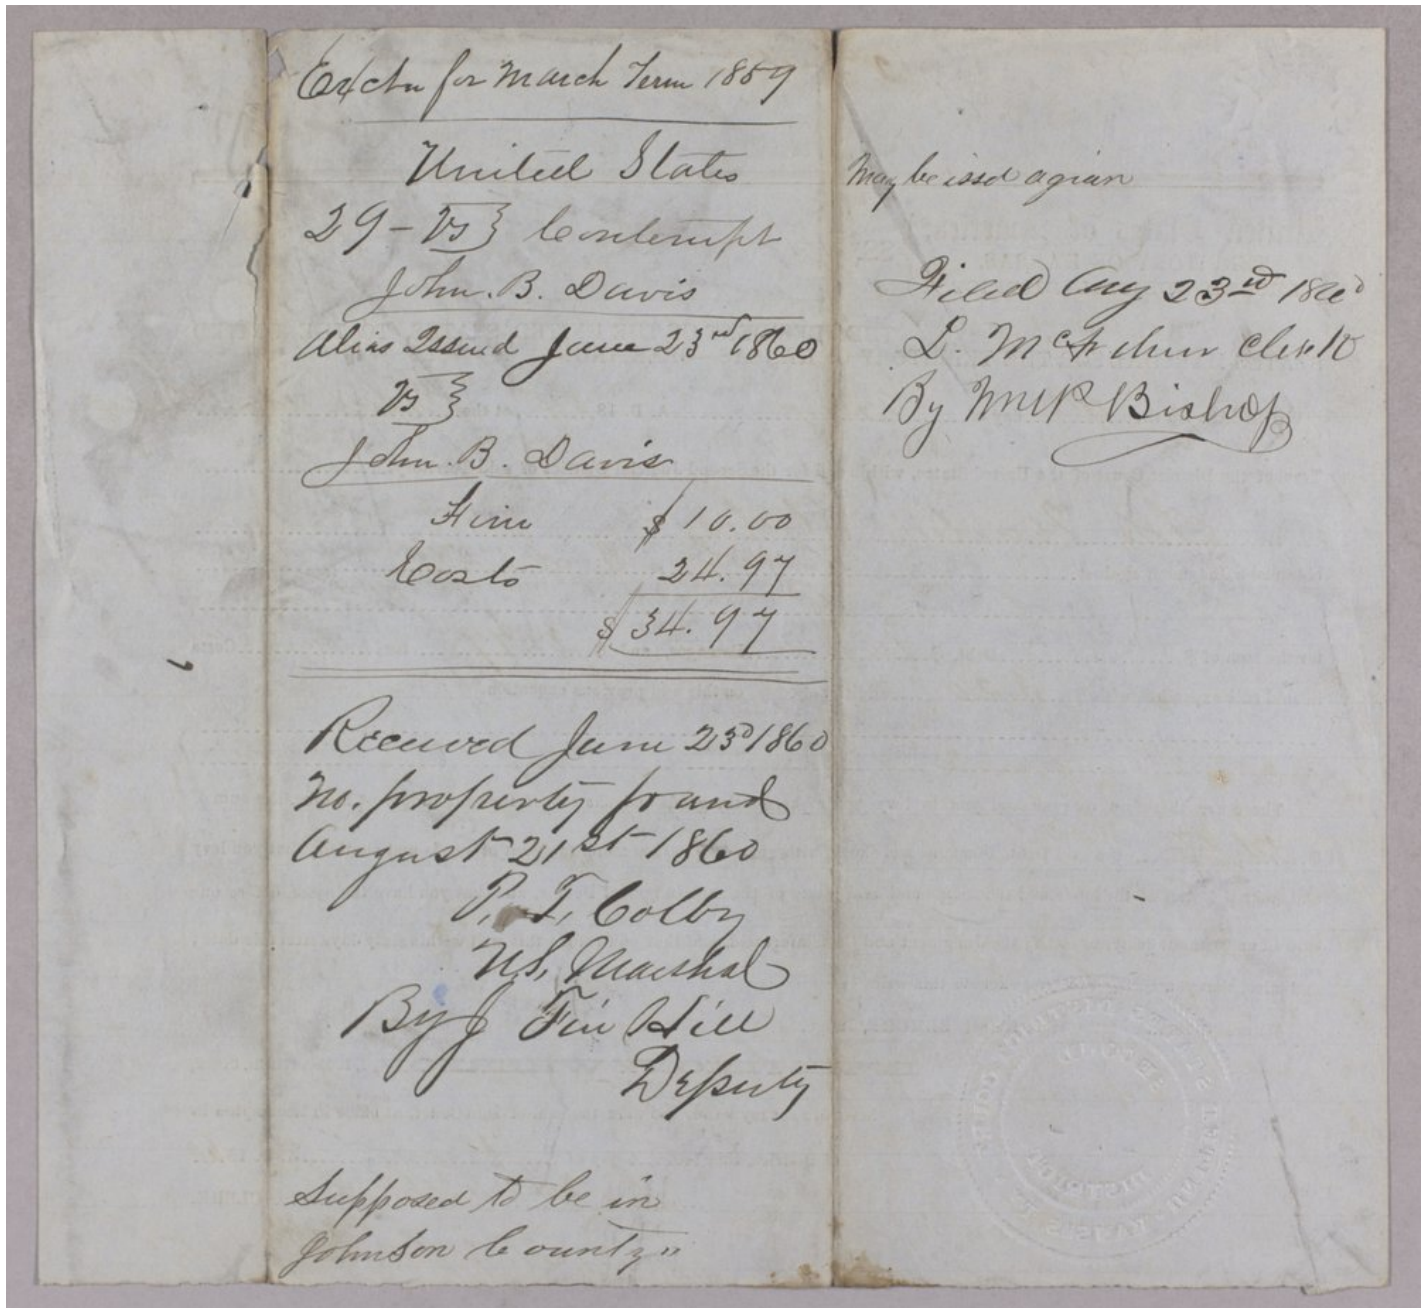 Exctn for March Term 1859
United States
29 - vs } Contempt
John. B. Davis
Alias Issued June 23rd 1860
vs }
John. B. Davis
Fine $ 10.00
Costs 24.97
$ 34.97
Received June 23d 1860
No. property found
August 21st 1860
P. T. Colby
U.S. Marshal
By J Fin Hill
Deputy
Supposed to be in
Johnson County"
May be issd agian
Filed Aug 23rd 1860
L. McArthur Clerk
By Bishop